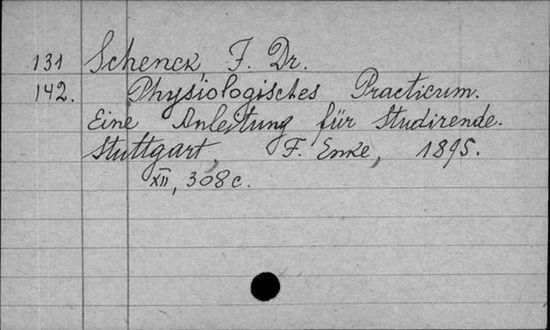 131 Schenck F. Dr.
142. Physiologisches Practicum.
Eine Anleitung für Studirende.
Stuttgart, F. Enke, 1895.
XII, 308 c.